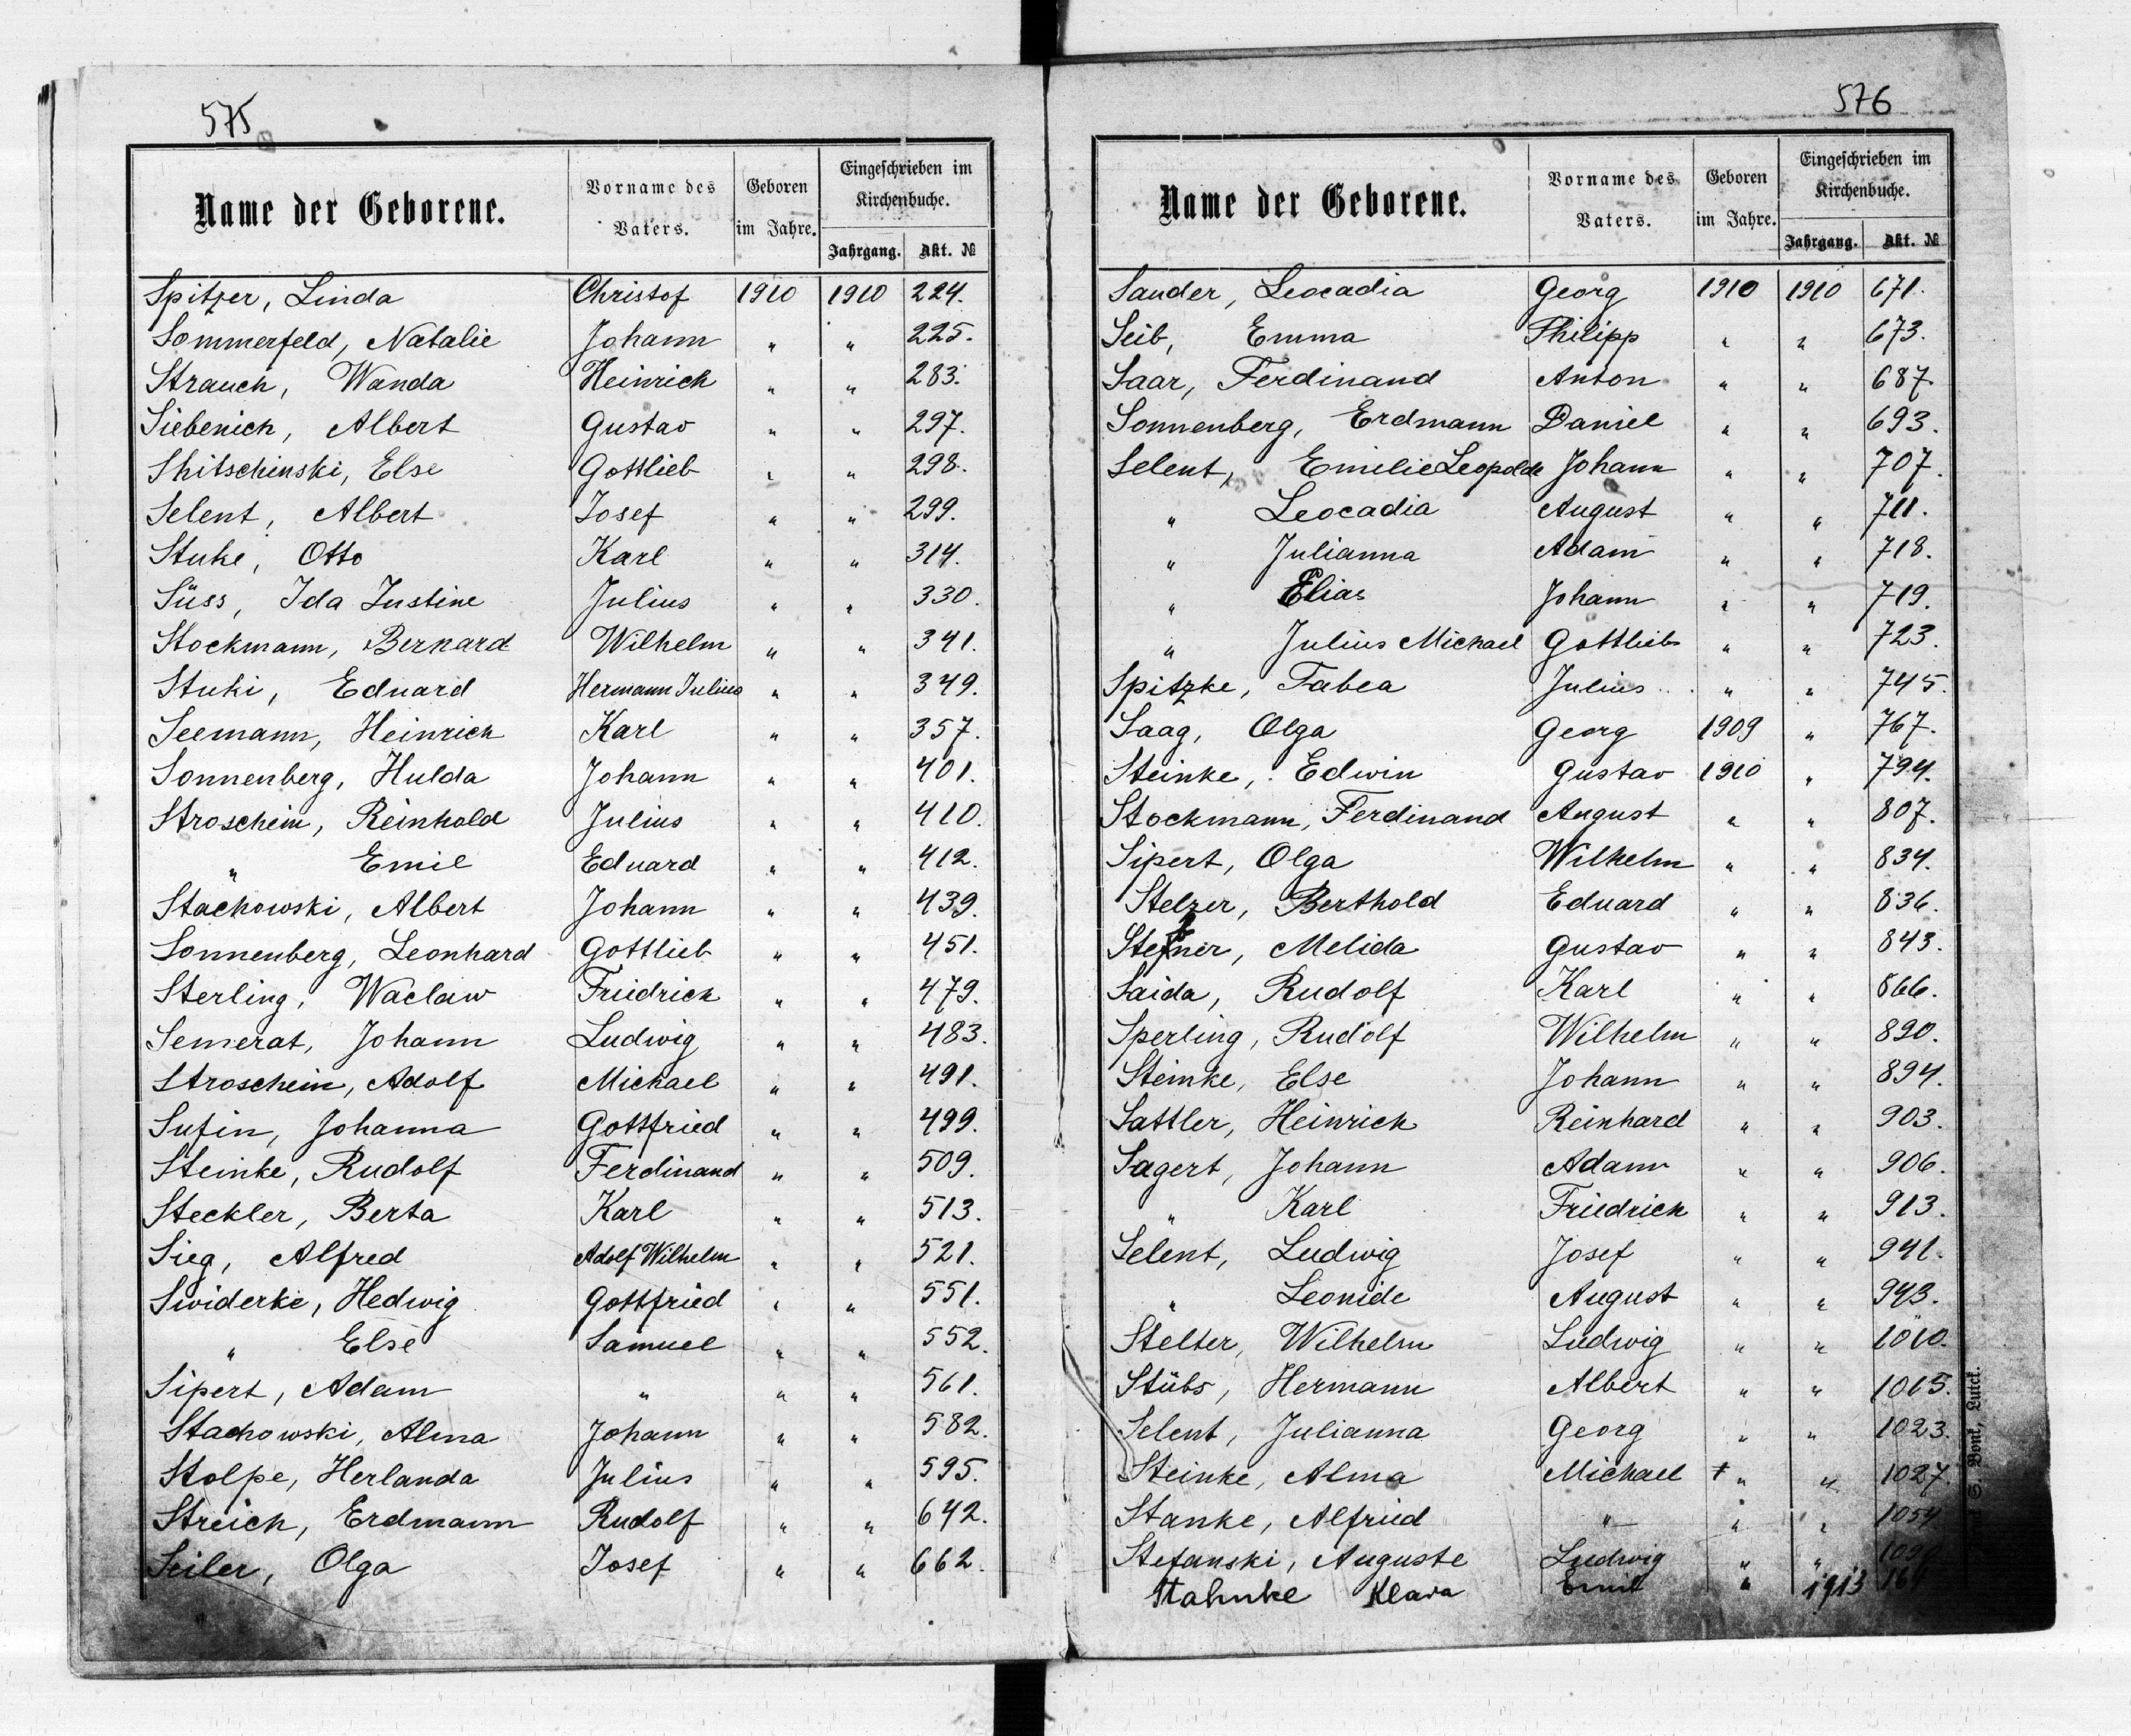 575
Name der Geborene. Vorname des Vaters. Geboren im Jahre. Eingeschrieben im Kirchenbuche. Jahrgang. Akt. №
Spitzer, Linda Christof 1910 1910 224.
Sommerfeld, Natalie Johann " " 225.
Strauch, Wanda Heinrich " " 283.
Siebenich, Albert Gustav " " 297.
Shitschinski, Else Gottlieb " " 298.
Selent, Albert Josef " " 299.
Stuke, Otto Karl " " 314.
Süss, Ida Justine Julius " " 330.
Stockmann, Bernard Wilhelm " " 341.
Stuki, Eduard Hermann Julius " " 349.
Seemann, Heinrich Karl " " 357.
Sonnenberg, Hulda Johann " " 401.
Stroschein, Reinhold Julius " " 410.
" Emil Eduard " " 412.
Stachowski, Albert Johann " " 439.
Sonnenberg, Leonhard Gottlieb " " 451.
Sterling, Waclaw Friedrich " " 479.
Semerat, Johann Ludwig " " 483.
Stroschein, Adolf Michael " " 491.
Sufin, Johanna Gottfried " " 499.
Steinke, Rudolf Ferdinand " " 509.
Steckler, Berta Karl " " 513.
Sieg, Alfred Adolf Wilhelm " " 521.
Swiderke, Hedwig Gottfried " " 551.
" Else Samuel " " 552.
Sipert, Adam " " " 561.
Stachowski, Alma Johann " " 582.
Stolpe, Herlanda Julius " " 595.
Streich, Erdmann Rudolf " " 642.
Seiler, Olga Josef " " 662.
576
Name der Geborene. Vorname des Vaters. Geboren im Jahre. Eingeschrieben im Kirchenbuche. Jahrgang. Akt. №
Sander, Leocadia Georg 1910 1910 671.
Seib, Emma Philipp " " 673.
Saar, Ferdinand Anton " " 687.
Sonnenberg, Erdmann Daniel " " 693.
Selent, Emilie Leopolde Johann " " 707.
" Leocadia August " " 711.
" Julianna Adam " " 718.
" Elias Johann " " 719.
" Julius Michael Gottlieb " " 723.
Spitzke, Tabea Julius " " 745.
Saag, Olga Georg 1909 " 767.
Steinke, Edwin Gustav 1910 " 794.
Stockmann, Ferdinand August " " 807.
Sipert, Olga Wilhelm " " 834.
Stelzer, Berthold Eduard " " 836.
Melida Gustav " " 843.
Saida, Rudolf Karl " " 866.
Sperling, Rudolf Wilhelm " " 890.
Steinke, Else Johann " " 894.
Sattler, Heinrich Reinhard " " 903.
Sagert, Johann Adam " " 906.
" Karl Friedrich " " 913.
Selent, Ludwig Josef " " 941.
" Leonide August " " 943.
Stelter, Wilhelm Ludwig " " 1010.
Stübs, Hermann Albert " " 1015.
Selent, Julianna Georg " " 1023.
Steinke, Alma Michael + " " 1027.
Stanke, Alfried " " " 1054.
Stefanski, Auguste Ludwig " "
Stahnke Klara Emil " 1913
S. Bonk, Lutck.